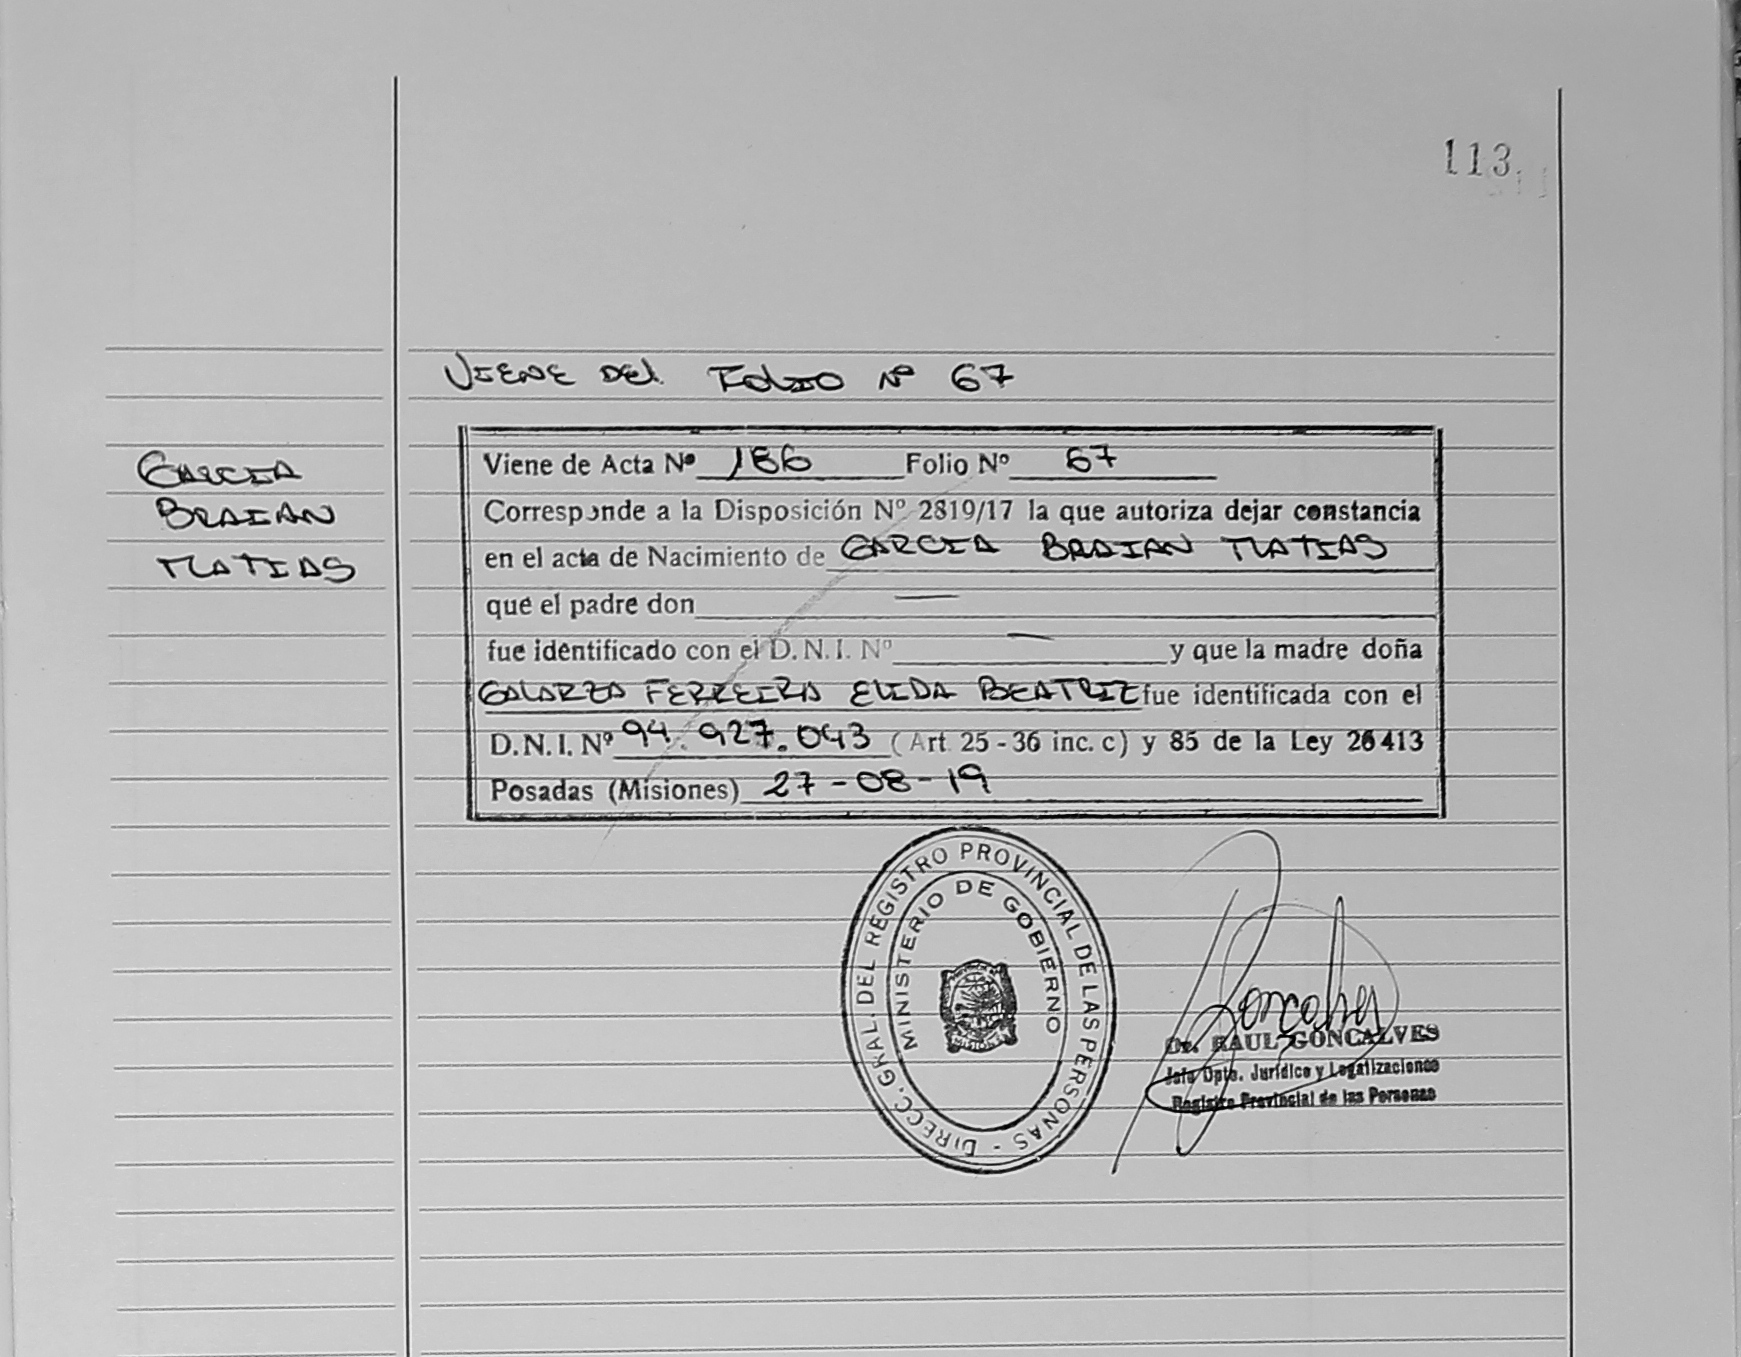 113.
VIENE DEL FOLIO Nº 67
GARCIA
BRAIAN
MATIAS
Viene de Acta Nº 186 Folio Nº 67
Corresponde a la Disposición Nº 2819/17 la que autoriza dejar constancia
en el acta de Nacimiento de GARCIA BRAIAN MATIAS
que el padre don —
fue identificado con el D.N.I. Nº — y que la madre doña
GALARZA FERREIRA ELIDA BEATRIZ fue identificada con el
D.N.I. Nº 94.927.043 (Art. 25 - 36 inc. c) y 85 de la Ley 26413
Posadas (Misiones) 27-08-19
DIRECC. GRAL. DEL REGISTRO PROVINCIAL DE LAS PERSONAS -
MINISTERIO DE GOBIERNO
MISIONES
Goncalves
Dr. RAUL GONCALVES
Jefe Dpto. Jurídico y Legalizaciones
Registro Provincial de las Personas